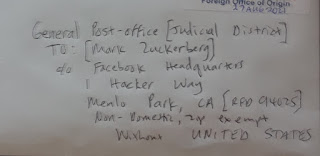 Foreign Office of Origin
27 APR 2021
General Post-office [Judicial District]
TO: [Mark Zuckerberg]
c/o Facebook Headquarters
1 Hacker Way
Menlo Park, CA [RFD 94025]
Non-Domestic, zip exempt
Without UNITED STATES